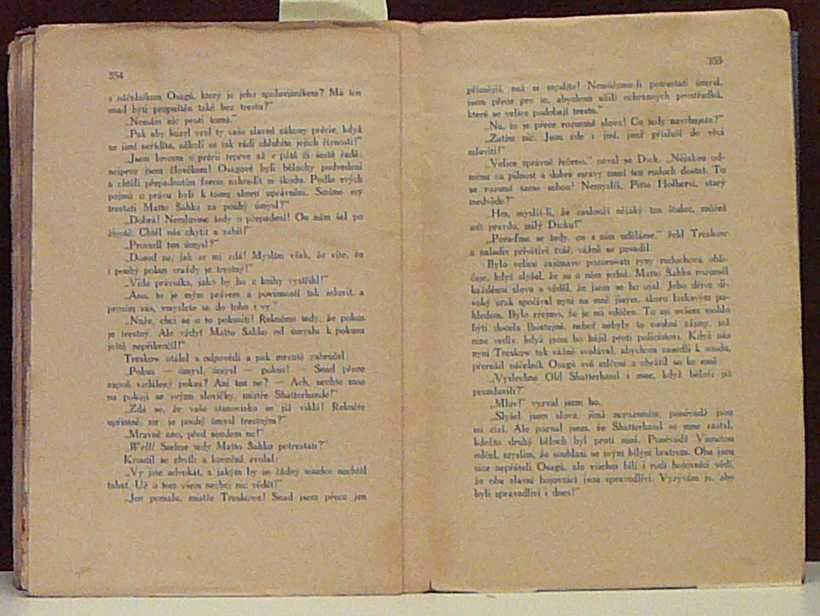 354
s náčelníkem Osagů, který je jeho spoluvinníkem? Má ten
snad býti propuštěn také bez trestu?"
„Nemám nic proti tomu."
„Pak aby kozel vzal ty vaše slavné zákony prérie, když
se jimi neřídíte, ačkoli se tak rádi chlubíte jejich
„Jsem lovcem a právu teprve až v páté či šesté řadě;
nejprve jsem člověkem! Osagové byli bělochy podvedeni
a chtěli přepadnutím farem nahradit si škodu. Podle svých
pojmů o právu byli k tomu skoro oprávněni. Smíme my
trestati Matto Šahko za pouhý úmysl?"
„Dobrá! Nemluvme tedy o přepadení! On nám šel po
životě. Chtěl nás chytit a zabít!"
„Provedl ten úmysl?"
„Dosud ne, jak se mi zdá! Myslím však, že víte, že
i pouhý pokus vraždy je trestný!"
„Vida právníka, jako by ho z knihy vystřihl!"
„Ano, to je mým právem a povinností tak mluvit, a
prosím vás, vmyslete se do toho i vy."
„Nuže, chci se o to pokusiti! Řekněme tedy, že pokus
je trestný. Ale vždyť Matto Šahko od úmyslu k pokusu
ještě nepřikročil!"
Treskow otálel s odpovědí a pak mrzutě zabručel:
„Pokus — úmysl, úmysl — pokus! — Snad přece
aspoň vzdálený pokus? Ani ten ne? — Ach, nechte mne
na pokoji se svými slovíčky, mistře Shatterhande!"
„Zdá se, že vaše stanovisko se již viklá! Řekněte
upřímně, sir, je pouhý úmysl trestným?"
„Mravně ano, před soudem ne!"
„Well! Smíme tedy Matto Šahko potrestati?"
Kroutil se chvíli a konečně zvolal:
„Vy jste advokát, s jakým by se žádný soudce nechtěl
tahat. Už o tom všem nechci nic vědět!"
„Jen pomalu, mistře Treskowe! Snad jsem přece jen
355
přísnější, než si myslíte! Nemůžeme-li potrestati úmysl,
jsem přece pro to, abychom užili ochranných prostředků,
které se velice podobají trestu."
„No, to je přece rozumné slovo! Co tedy navrhujete?"
„Zatím nic. Jsou zde i jiní, jimž přísluší do věci
mluviti!"
„Velice správně řečeno," ozval se Dick. „Nějakou od-
měnu za pilnost a dobré mravy musí ten rudoch dostat. To
se rozumí samo sebou! Nemyslíš, Pitte Holbersi, starý
medvěde?"
„Hm, myslíš-li, že zaslouží nějaký ten štulec, můžeš
mít pravdu, milý Dicku!"
„Poraďme se tedy, co s ním uděláme," řekl Treskow
a naladiv přívětivě tvář, vážně se posadil.
Bylo velice zajímavo pozorovati rysy rudochova obli-
čeje, když slyšel, že se o něm jedná. Matto Šahko rozuměl
každému slovu a věděl, že jsem se ho ujal. Jeho dříve di-
voký zrak spočíval nyní na mně jiným, skoro laskavým po-
hledem. Bylo zřejmo, že je mi vděčen. To mi ovšem mohlo
býti docela lhostejné, neboť nebyly to osobní zájmy, jež
mne vedly, když jsem ho hájil proti policistovi. Když nás
nyní Treskow tak vážně vyzýval, abychom zasedli k soudu,
přerušil náčelník Osagů své mlčení a obrátil se ke mně:
„Vyslechne Old Shatterhand i mne, když běloši již
promluvili?"
„Mluv!" vyzval jsem ho.
„Slyšel jsem slova, jimž nerozumím, poněvadž jsou
mi cizí. Ale poznal jsem, že Shatterhand se mne zastal,
kdežto druhý běloch byl proti mně. Poněvadž Vinnetou
mlčel, myslím, že souhlasí se svým bílým bratrem. Oba jsou
sice nepřáteli Osagů, ale všichni bílí i rudí bojovníci vědí,
že oba slavní bojovníci jsou spravedliví. Vyzývám je, aby
byli spravedliví i dnes!"